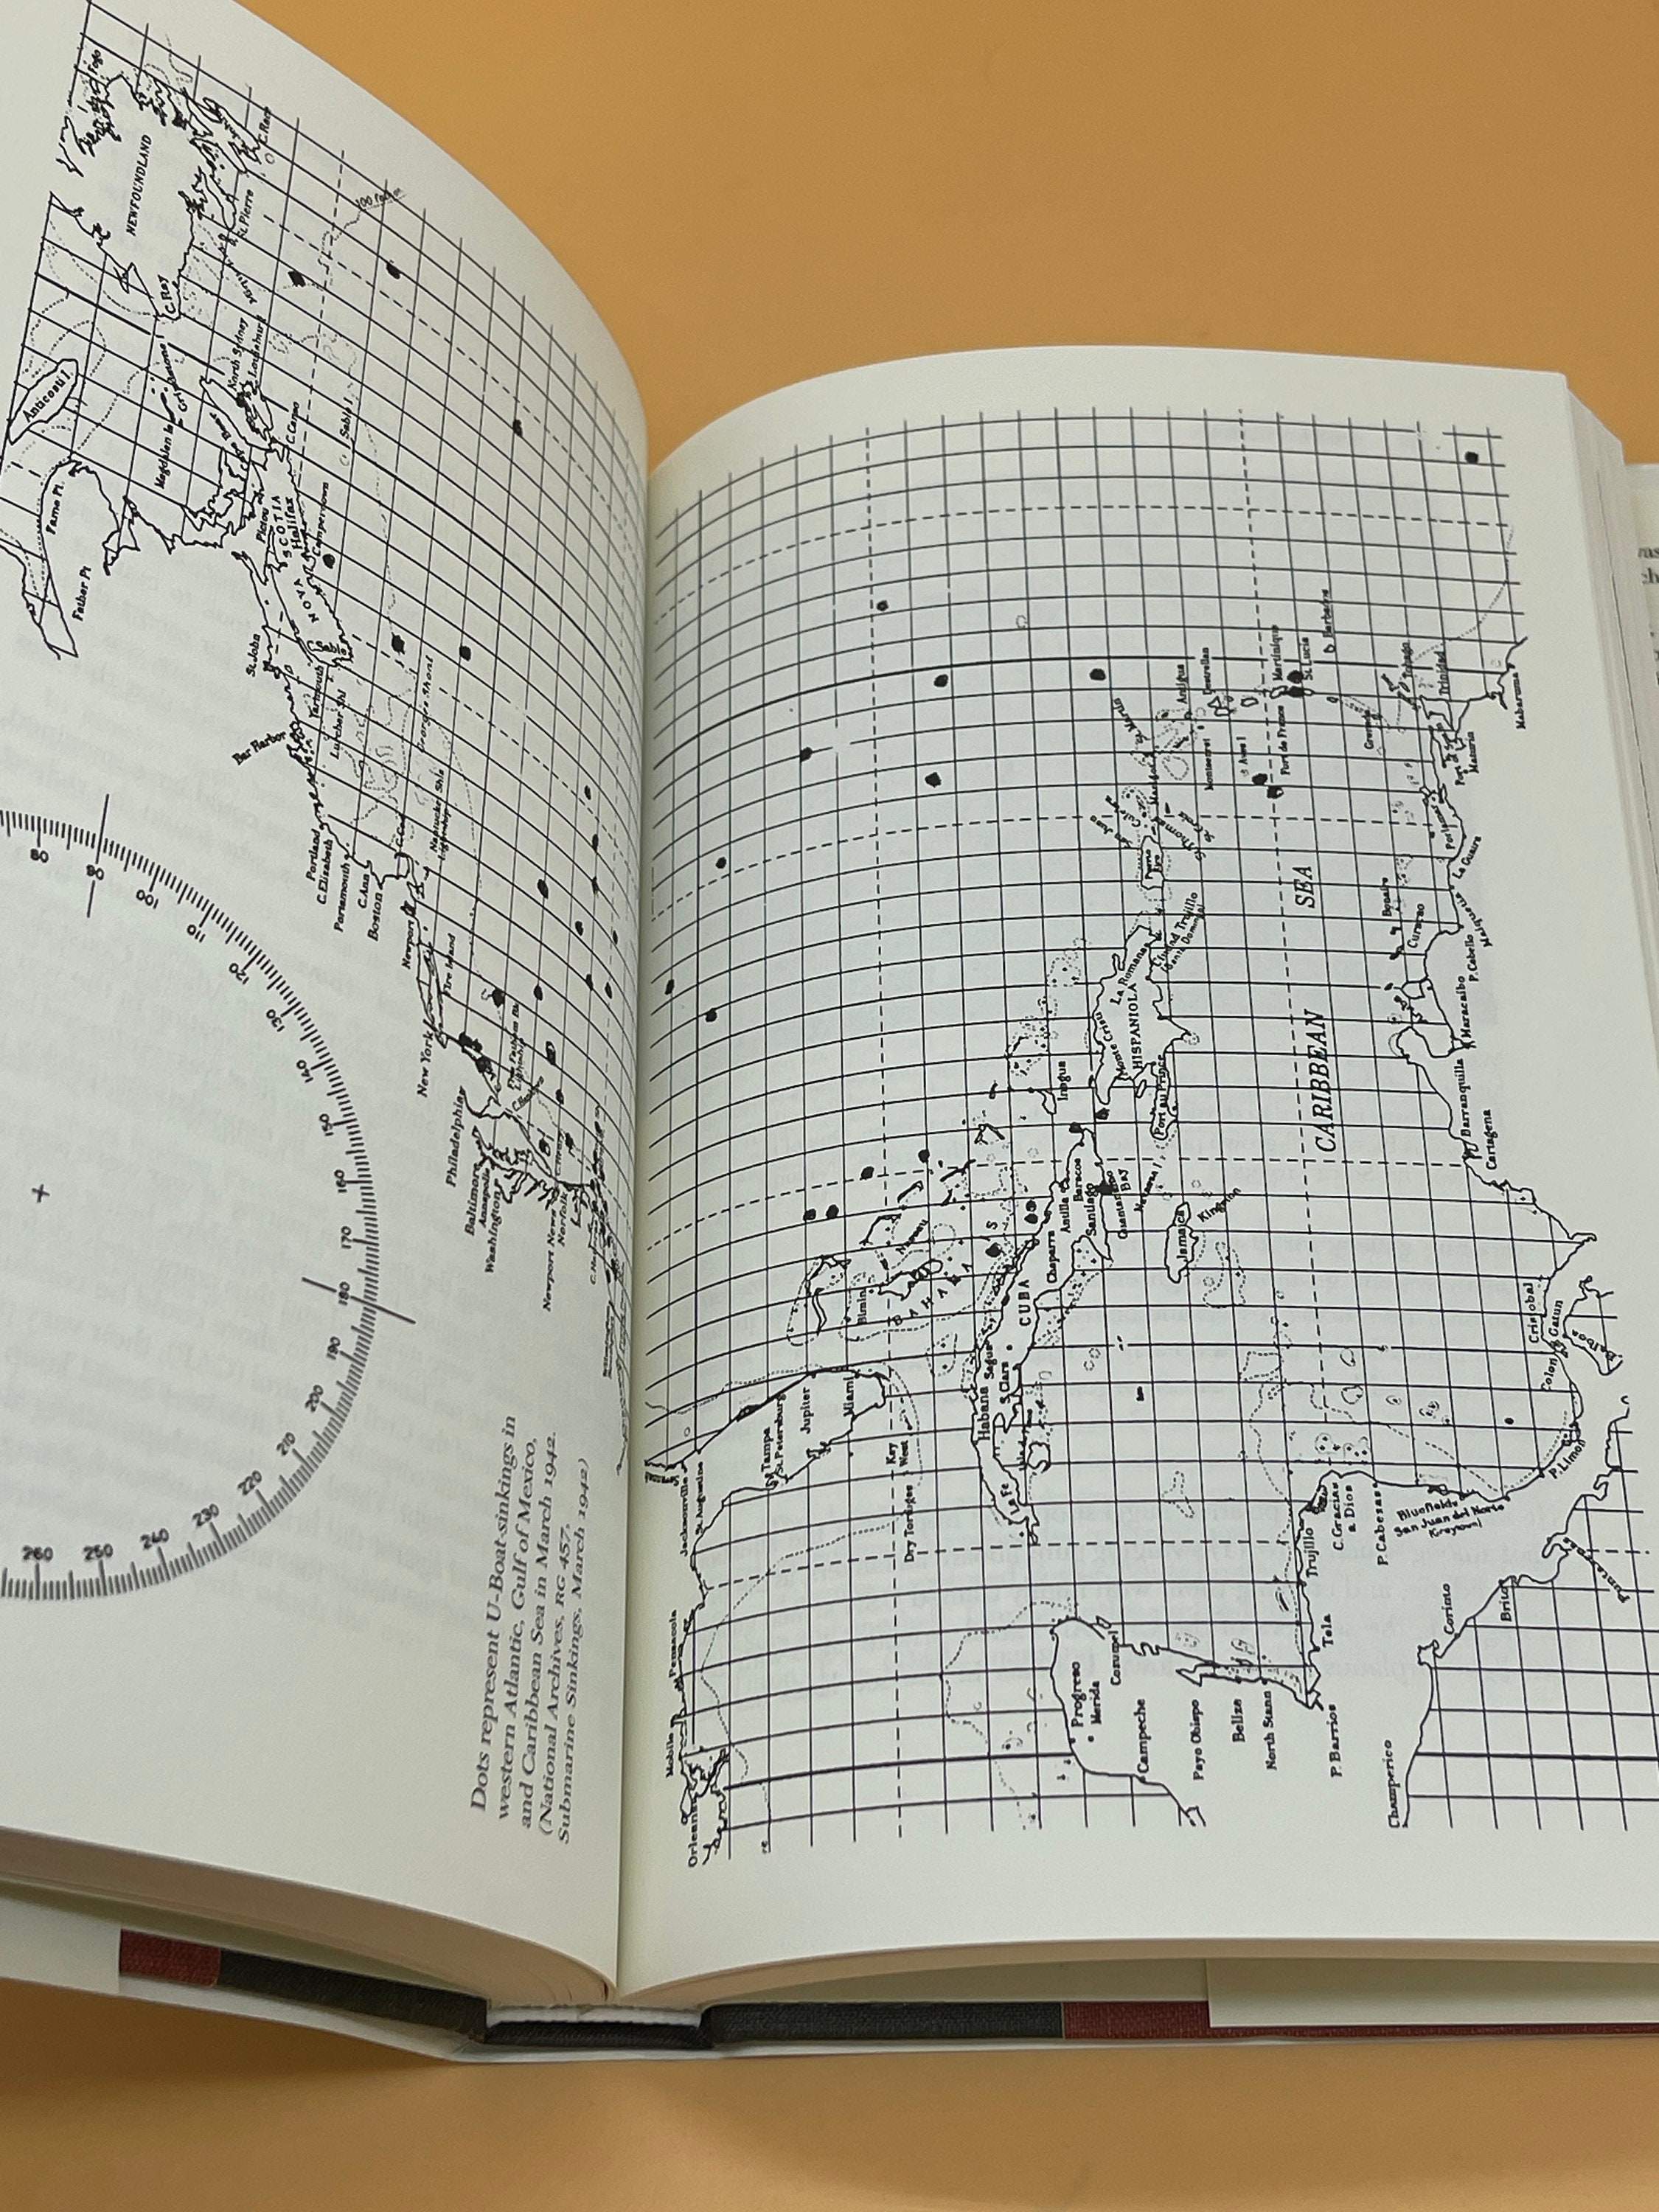 Dots represent U-Boat sinkings in
western Atlantic, Gulf of Mexico,
and Caribbean Sea in March 1942.
(National Archives, RG 457,
Submarine Sinkings, March 1942)
NEWFOUNDLAND
Fogo
C. Race
St. Pierre
C. Ray
Anticosti I.
Fame Pt.
Father Pt
North Sydney
Louisburg
C. Canso
Sable I
Pictou
NOVA SCOTIA
Halifax
Camperdown
St. John
Yarmouth
C. Sable
Lurcher Shl
Bar Harbor
Georges Shoal
Portland
C. Elizabeth
Portsmouth
C. Ann
Boston
C. Cod
Nantucket Shls
Lightship
Newport
Fire Island
New York
Philadelphia
Baltimore
Annapolis
Washington
Newport News
Norfolk
C. Henry
80
90
100
110
120
130
140
150
160
170
180
190
200
210
220
230
240
250
260
Orleans
Mobile
Pensacola
Jacksonville
St. Augustine
Tampa
St. Petersburg
Jupiter
Miami
Key
West
Dry Tortugas
Bimini
Nassau
Habana
Sagua
S. Clara
La Fe
CUBA
Chaparra
Antilla
Baracoa
Santiago
Guantanamo
Bay
Navassa I.
Inagua
Jamaica
Kingston
Monte Cristi
HISPANIOLA
Port au Prince
La Romana
Ciudad Trujillo
San Juan
Culebra
St. Thomas
Antigua
Montserrat
Aves I
Martinique
Fort de France
St. Lucia
Barbados
Grenada
Tobago
Trinidad
Maturin
Mabaruma
CARIBBEAN
SEA
Bonaire
Curacao
La Guaira
P. Cabello
Maracaibo
Barranquilla
Cartagena
Cristobal
Colon
Gatun
Balboa
P. Limon
Bluefields
San Juan del Norte
P Cabezas
C. Gracias
a Dios
Trujillo
Tela
P. Barrios
North Stann
Belize
Payo Obispo
Campeche
Progreso
Merida
Cozumel
Champerico
Corinto
Brito
Punta